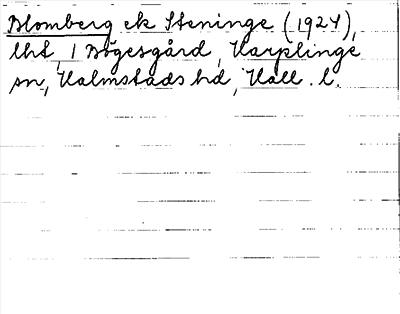 Blomberg ek Steninge (1924),
lht, 1 Bögesgård, Harplinge
sn, Halmstads hd, Hall. l.